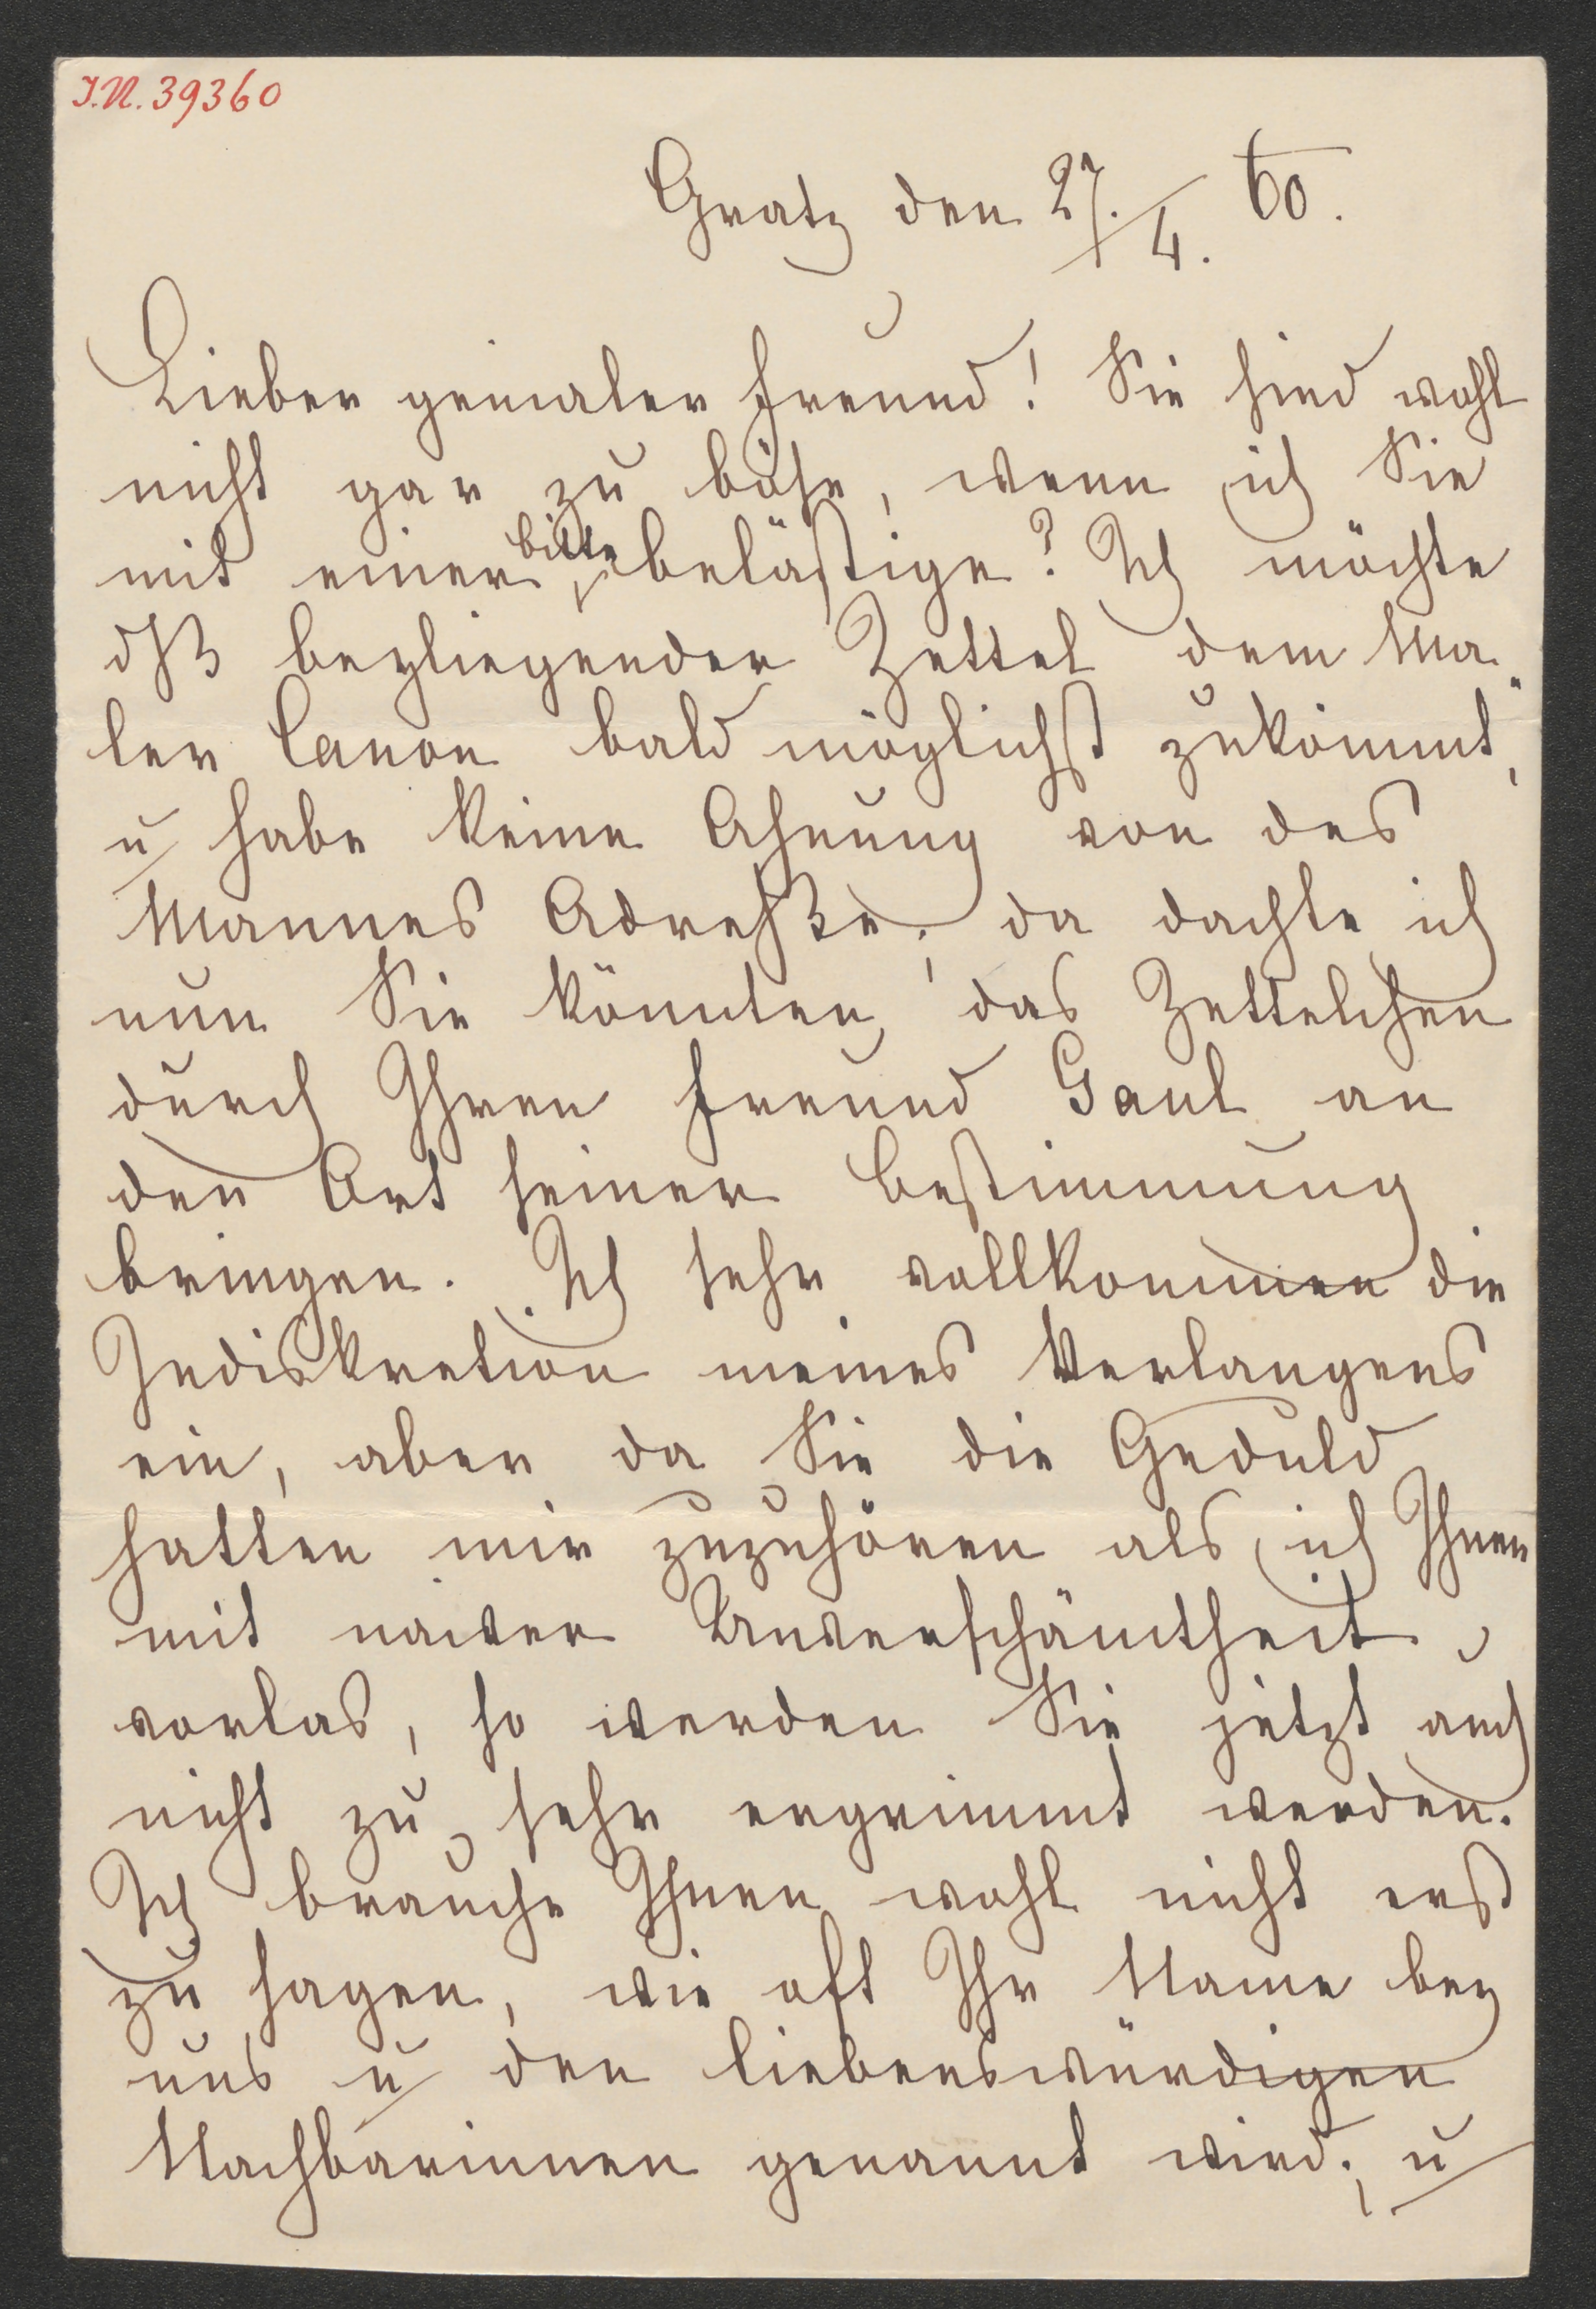 I.N. 39360
Gratz den 27./4. 60.
Lieber genialer Freund! Sie sind wohl
nicht gar zu böse, wenn ich Sie
mit einer Bitte belästige? Ich möchte
dßß beyliegender Zettel dem Ma-
ler Canon bald möglichst zukömmt,
u habe keine Ahnung von des
Mannes Adreßße; da dachte ich
nun Sie könnten das Zettelchen
durch Ihren Freund Gaul an
den Ort seiner Bestimmung
bringen. Ich sehe vollkommen die
Indiskretion meines Verlangens
ein, aber da Sie die Geduld
hatten mir zuzuhören als ich Ihnen
mit naiver Unverschämtheit
vorlas, so werden Sie jetzt auch
nicht zu sehr ergrimmt werden.
Ich brauche Ihnen wohl nicht erst
zu sagen, wie oft Ihr Name bey
uns u den liebenswürdigen
Nachbarinnen genannt wird; u